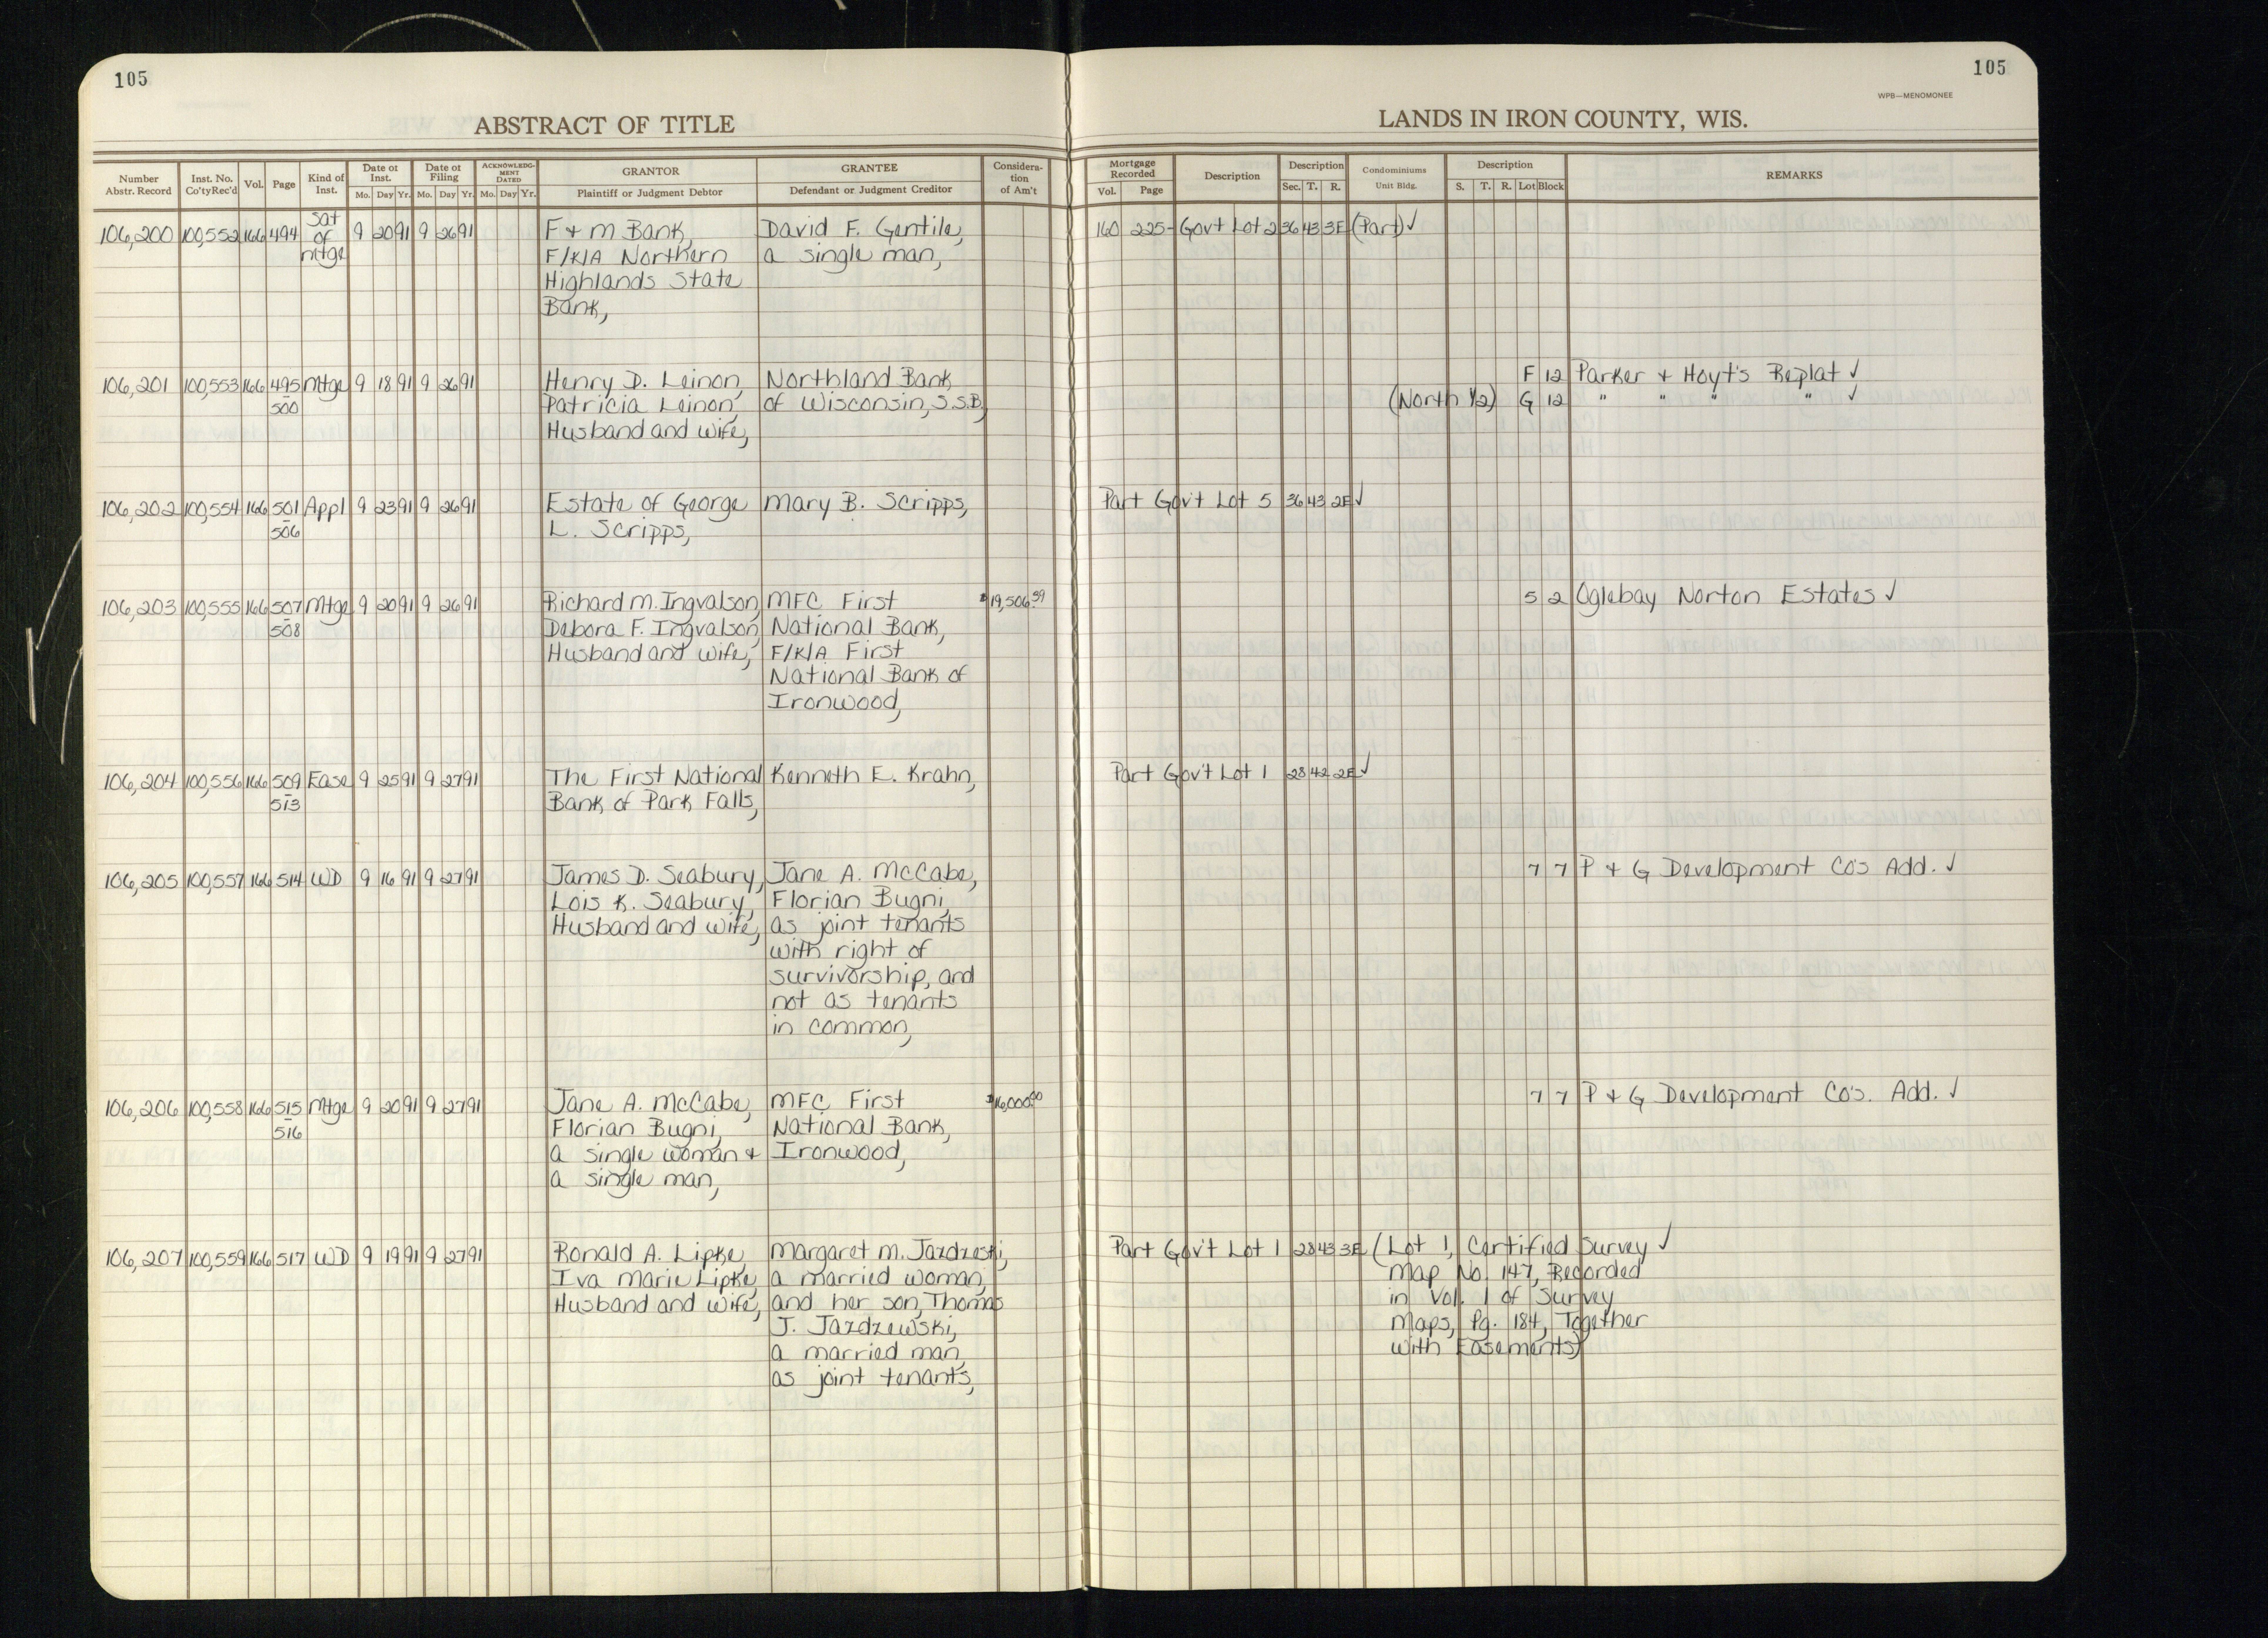 105
105
WPB—MENOMONEE
ABSTRACT OF TITLE
LANDS IN IRON COUNTY, WIS.
Number Abstr. Record | Inst. No. Co'ty Rec'd | Vol. | Page | Kind of Inst. | Date of Inst. Mo. Day Yr. | Date of Filing Mo. Day Yr. | ACKNOWLEDGMENT DATED Mo. Day Yr. | GRANTOR Plaintiff or Judgment Debtor | GRANTEE Defendant or Judgment Creditor | Consideration of Am't | Mortgage Recorded Vol. Page | Description | Description Sec. T. R. | Condominiums Unit Bldg. | Description S. T. R. Lot Block | REMARKS
106,200 100,552 166 494 Sat of mtge 9 20 91 9 26 91 F & M Bank, David F. Gentile, 160 225- Govt Lot 2 36 43 3E (Part) ✓
F/K/A Northern a single man,
Highlands State
Bank,
106,201 100,553 166 495 Mtge 9 18 91 9 26 91 Henry D. Leinon, Northland Bank F 12 Parker & Hoyt's Replat ✓
- 500 Patricia Leinon, of Wisconsin, S.S.B, (North ½) G 12 " " " " ✓
Husband and wife,
106,202 100,554 166 501 Appl 9 23 91 9 26 91 Estate of George Mary B. Scripps, Part Gov't Lot 5 36 43 2E ✓
- 506 L. Scripps,
106,203 100,555 166 507 Mtge 9 20 91 9 26 91 Richard M. Ingvalson, MFC First $19,506.59 5 2 Oglebay Norton Estates ✓
- 508 Debora F. Ingvalson, National Bank,
Husband and wife, F/K/A First
National Bank of
Ironwood,
106,204 100,556 166 509 Ease 9 25 91 9 27 91 The First National Kenneth E. Krahn, Part Gov't Lot 1 28 42 2E ✓
- 513 Bank of Park Falls,
106,205 100,557 166 514 WD 9 16 91 9 27 91 James D. Seabury, Jane A. McCabe, 7 7 P & G Development Co's Add. ✓
Lois K. Seabury, Florian Bugni,
Husband and wife, as joint tenants
with right of
survivorship, and
not as tenants
in common,
106,206 100,558 166 515 Mtge 9 20 91 9 27 91 Jane A. McCabe, MFC First $16,000.00 7 7 P & G Development Co's. Add. ✓
- 516 Florian Bugni, National Bank,
a single woman & Ironwood,
a single man,
106,207 100,559 166 517 WD 9 19 91 9 27 91 Ronald A. Lipke, Margaret M. Jazdzeski, Part Gov't Lot 1 28 43 3E (Lot 1, Certified Survey ✓
Iva Marie Lipke, a married woman, Map No. 147, Recorded
Husband and wife, and her son, Thomas in Vol. 1 of Survey
J. Jazdzewski, Maps, Pg. 184, Together
a married man, with Easements)
as joint tenants,